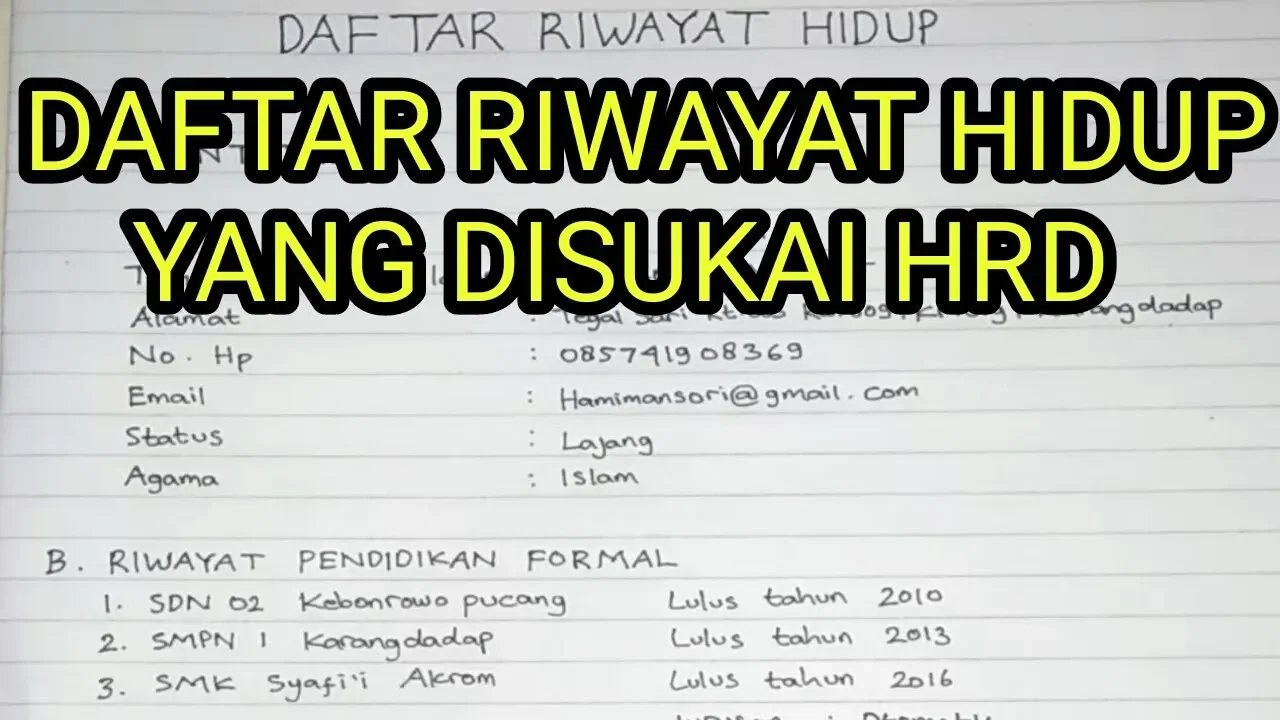 DAFTAR RIWAYAT HIDUP
DAFTAR RIWAYAT HIDUP
YANG DISUKAI HRD
Alamat : Tegal Sari
No. Hp : 085741908369
Email : Hamimansori@gmail.com
Status : Lajang
Agama : Islam
B. RIWAYAT PENDIDIKAN FORMAL
1. SDN 02 Kebonrowo pucang Lulus tahun 2010
2. SMPN 1 Karangdadap Lulus tahun 2013
3. SMK Syafi'i Akrom Lulus tahun 2016